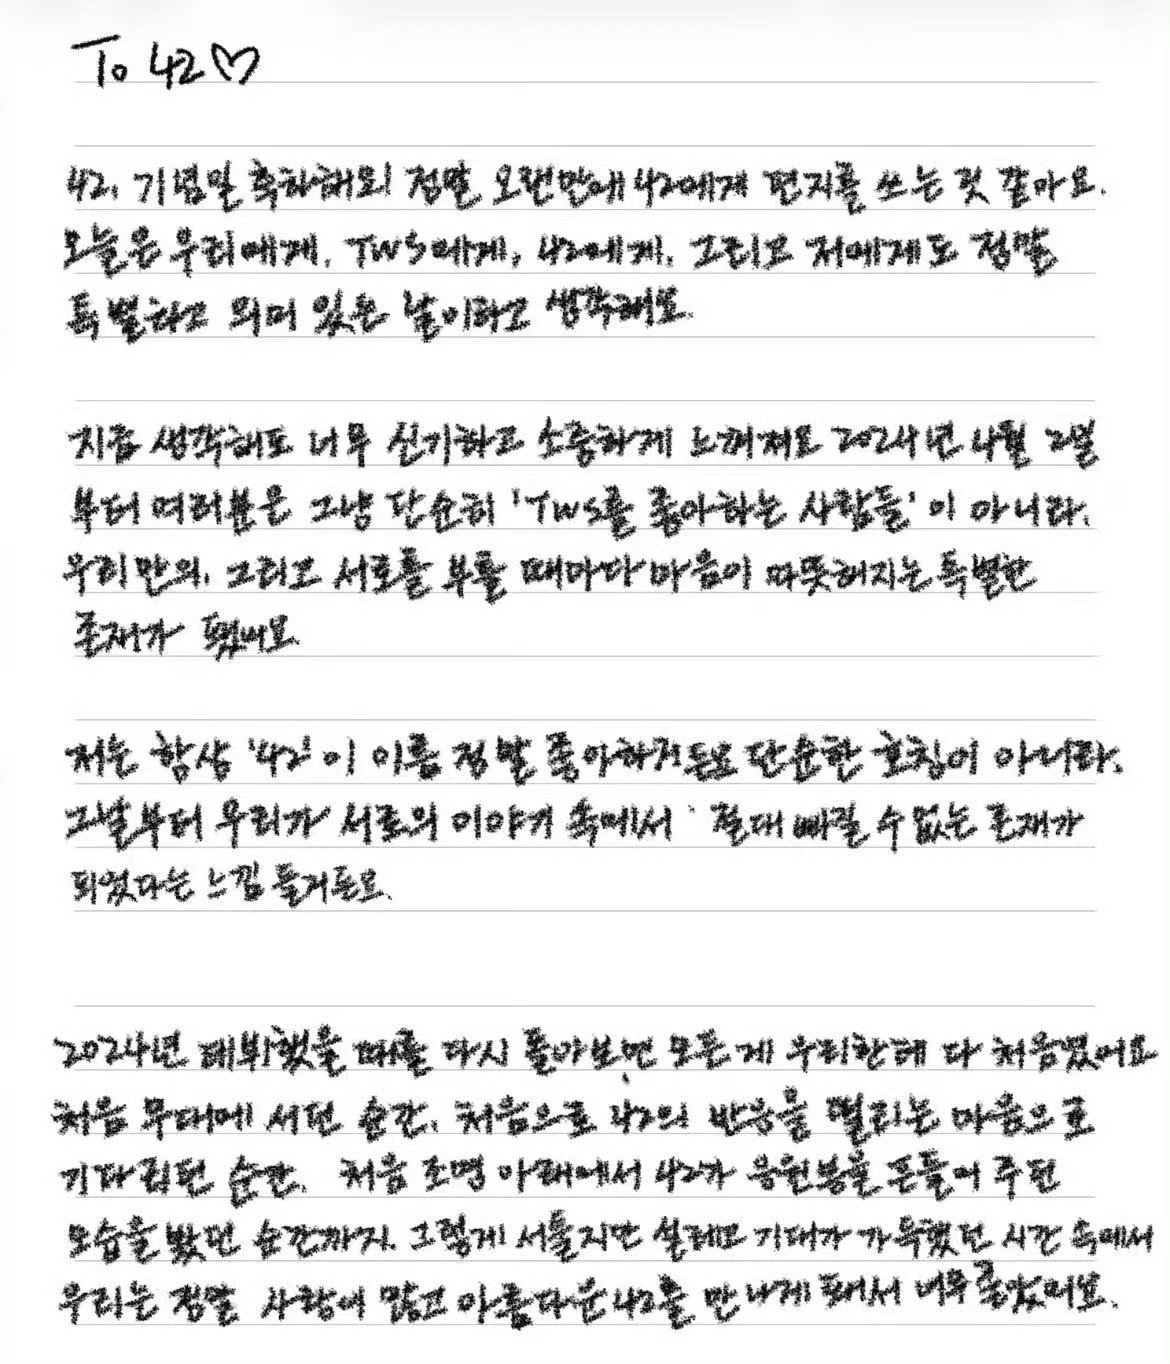 To 42♡
42, 기념일 축하해요! 정말 오랜만에 42에게 편지를 쓰는 것 같아요.
오늘은 우리에게, TWS에게, 42에게, 그리고 저에게도 정말
특별하고 의미 있는 날이라고 생각해요.
지금 생각해도 너무 신기하고 소중하게 느껴져요 2024년 4월 2일
부터 여러분은 그냥 단순히 'TWS를 좋아하는 사람들' 이 아니라,
우리만의, 그리고 서로를 부를 때마다 마음이 따뜻해지는 특별한
존재가 됐어요.
저는 항상 '42' 이 이름 정말 좋아하거든요 단순한 호칭이 아니라,
그날부터 우리가 서로의 이야기 속에서 절대 빠질 수 없는 존재가
되었다는 느낌 들거든요.
2024년 데뷔했을 때를 다시 돌아보면 모든 게 우리한테 다 처음였어요
처음 무대에 서던 순간, 처음으로 42의 반응을 떨리는 마음으로
기다리던 순간, 처음 조명 아래에서 42가 응원봉을 흔들어 주던
모습을 봤던 순간까지. 그렇게 서툴지만 설레고 기대가 가득했던 시간 속에서
우리는 정말 사랑이 많고 아름다운 42를 만나게 돼서 너무 좋았어요.